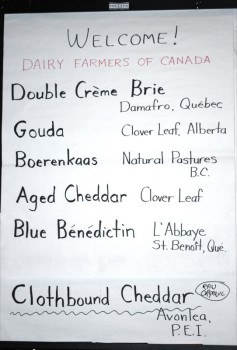 WELCOME!
DAIRY FARMERS OF CANADA
Double Crème Brie
Damafro, Québec
Gouda Clover Leaf, Alberta
Boerenkaas Natural Pastures
B.C.
Aged Cheddar Clover Leaf
Blue Bénédictin L'Abbaye
St. Benoît, Qué.
Clothbound Cheddar
Avonlea,
P.E.I.